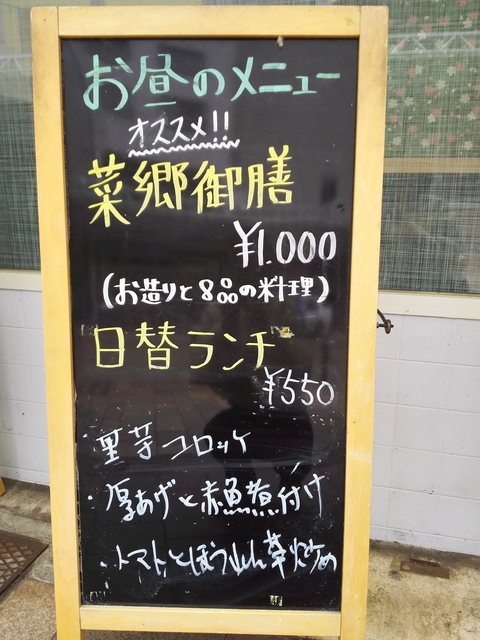 お昼のメニュー
オススメ!!
菜郷御膳
¥1.000
(お造りと8品の料理)
日替ランチ
¥550
・里芋コロッケ
・厚あげと赤魚煮付け
・トマトとほうれん草炒め